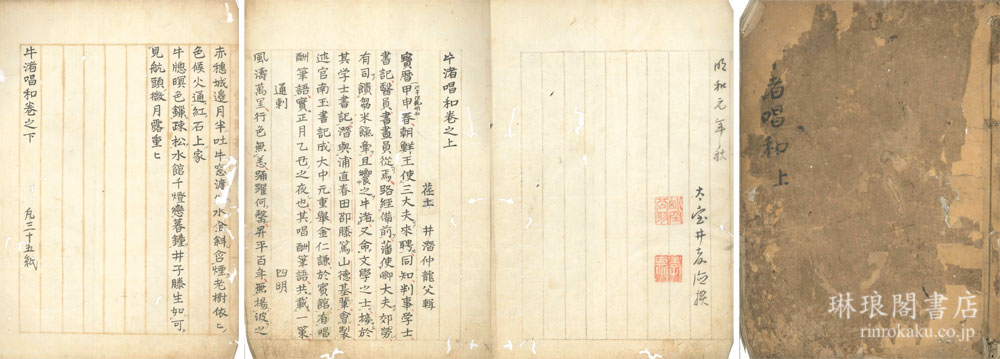 者唱和 上
明和元年秋
太室井孝德撰
牛渚唱和卷之上
荏土 井潜仲龍父輯
寶曆甲申春朝鮮王使三大夫來聘同知判事學士
書記醫員書畫員從焉路經備前藩使卿大夫郊勞
有司饋芻米餼牽且饗之牛渚又命文學之士接於
其学士書記潜與浦直春田邵滕篤山德基輩會製
述官南玉書記成大中元重舉金仁謙於賓館有唱
酬筆語實正月乙丑之夜也其唱酬筆語共載一策
通刺 四明
風濤萬里行色無恙踊躍何罄昇平百年無揚波之
赤穗城邊月半吐牛窓
水
斜含煙老樹依〻
色候火通紅石上家
牛牕暝色鎖踈松水館千燈戀暮鍾井子滕生如可
見航頭微月露重〻
牛渚唱和卷之下
凡三十五紙
琳琅閣書店
rinrokaku.co.jp